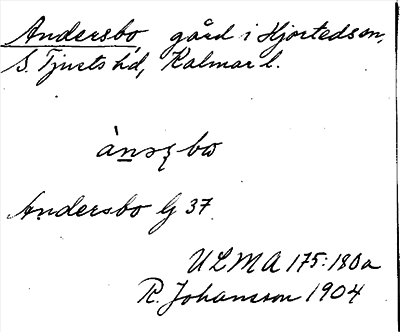 Andersbo gård i Hjorteds sn,
S. Tjusts hd, Kalmar l.
Andersbo Gj 37
ULMA 175:180a
R. Johansson 1904